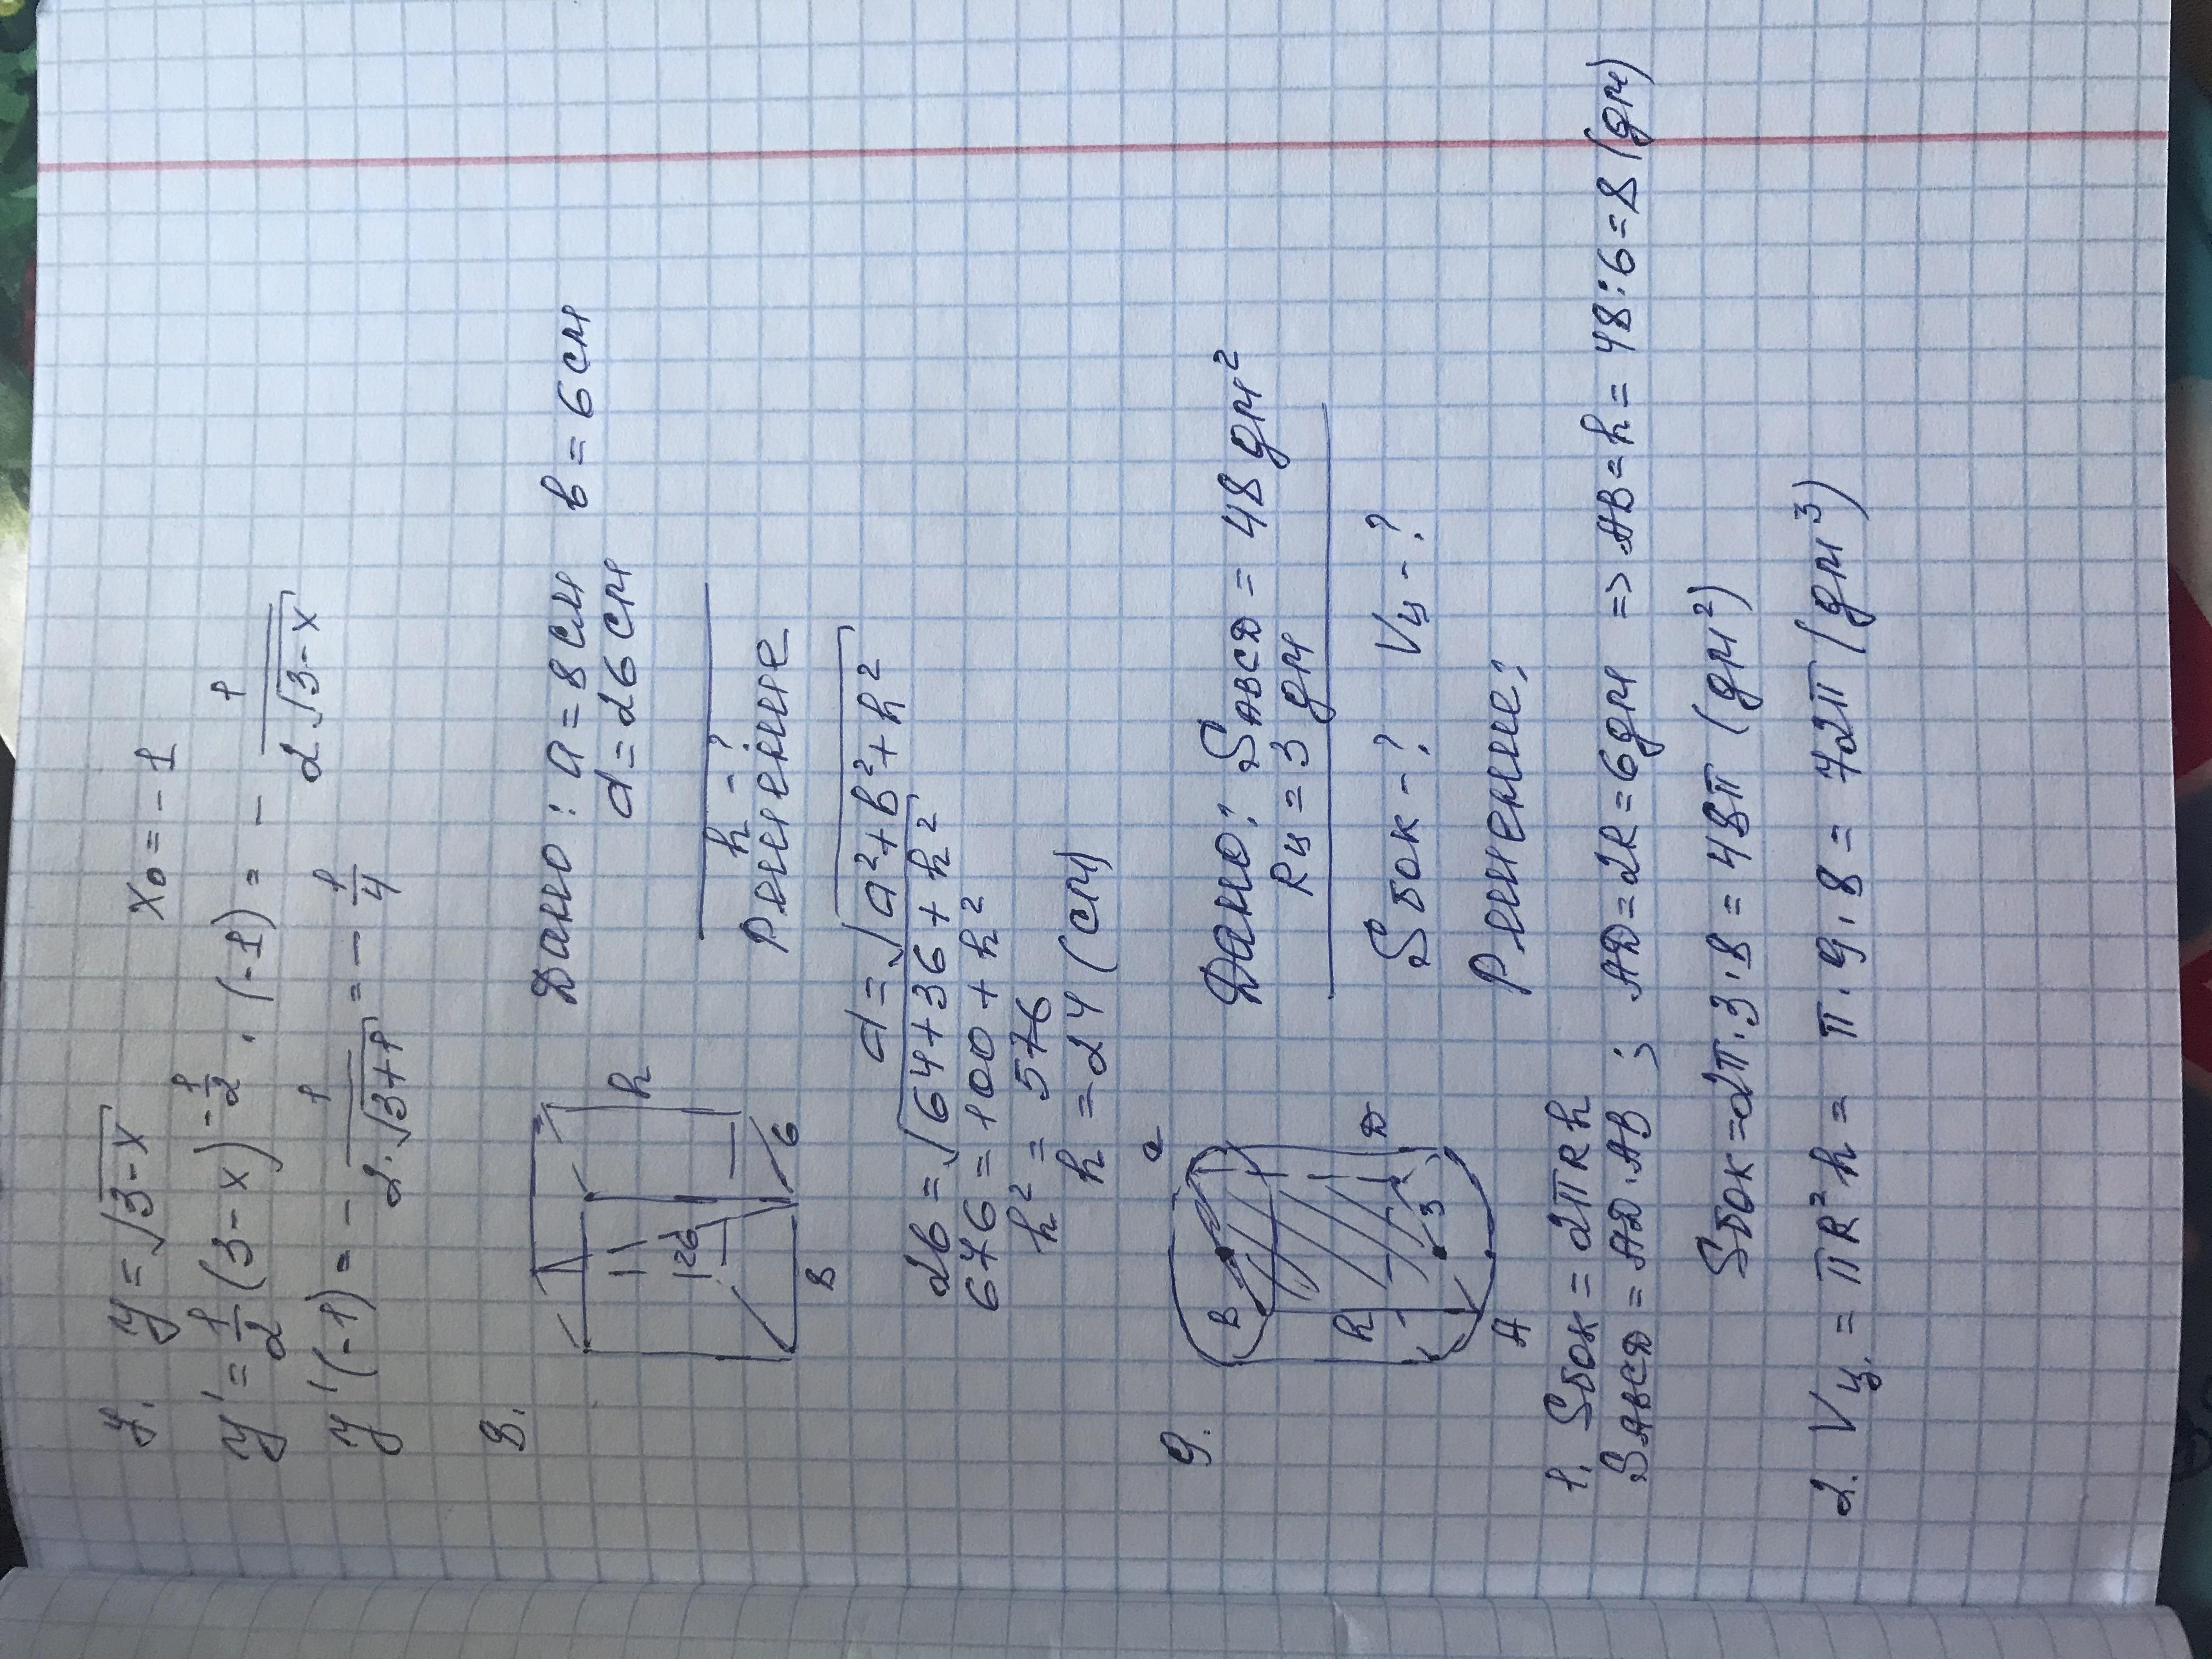 7. y = √3-x x₀ = -1
y' = 1/2 (3-x)^-1/2 · (-1) = - 1/(2·√3-x)
y'(-1) = - 1/(2·√3+1) = - 1/4
8. Дано: a = 8 см в = 6 см
d = 26 см
h
26
8
6
h - ?
Решение
d = √a²+в²+h²
26 = √64+36+h²
676 = 100 + h²
h² = 576
h = 24 (см)
9. Дано: SABCD = 48 дм²
Rц = 3 дм
B
C
h
3
A
D
Sбок - ? Vц - ?
Решение:
1. Sбок = 2πRh
SABCD = AD·AB ; AD = 2R = 6дм => AB = h = 48:6 = 8 (дм)
Sбок = 2π·3·8 = 48π (дм²)
2. Vц. = πR²h = π·9·8 = 72π (дм³)